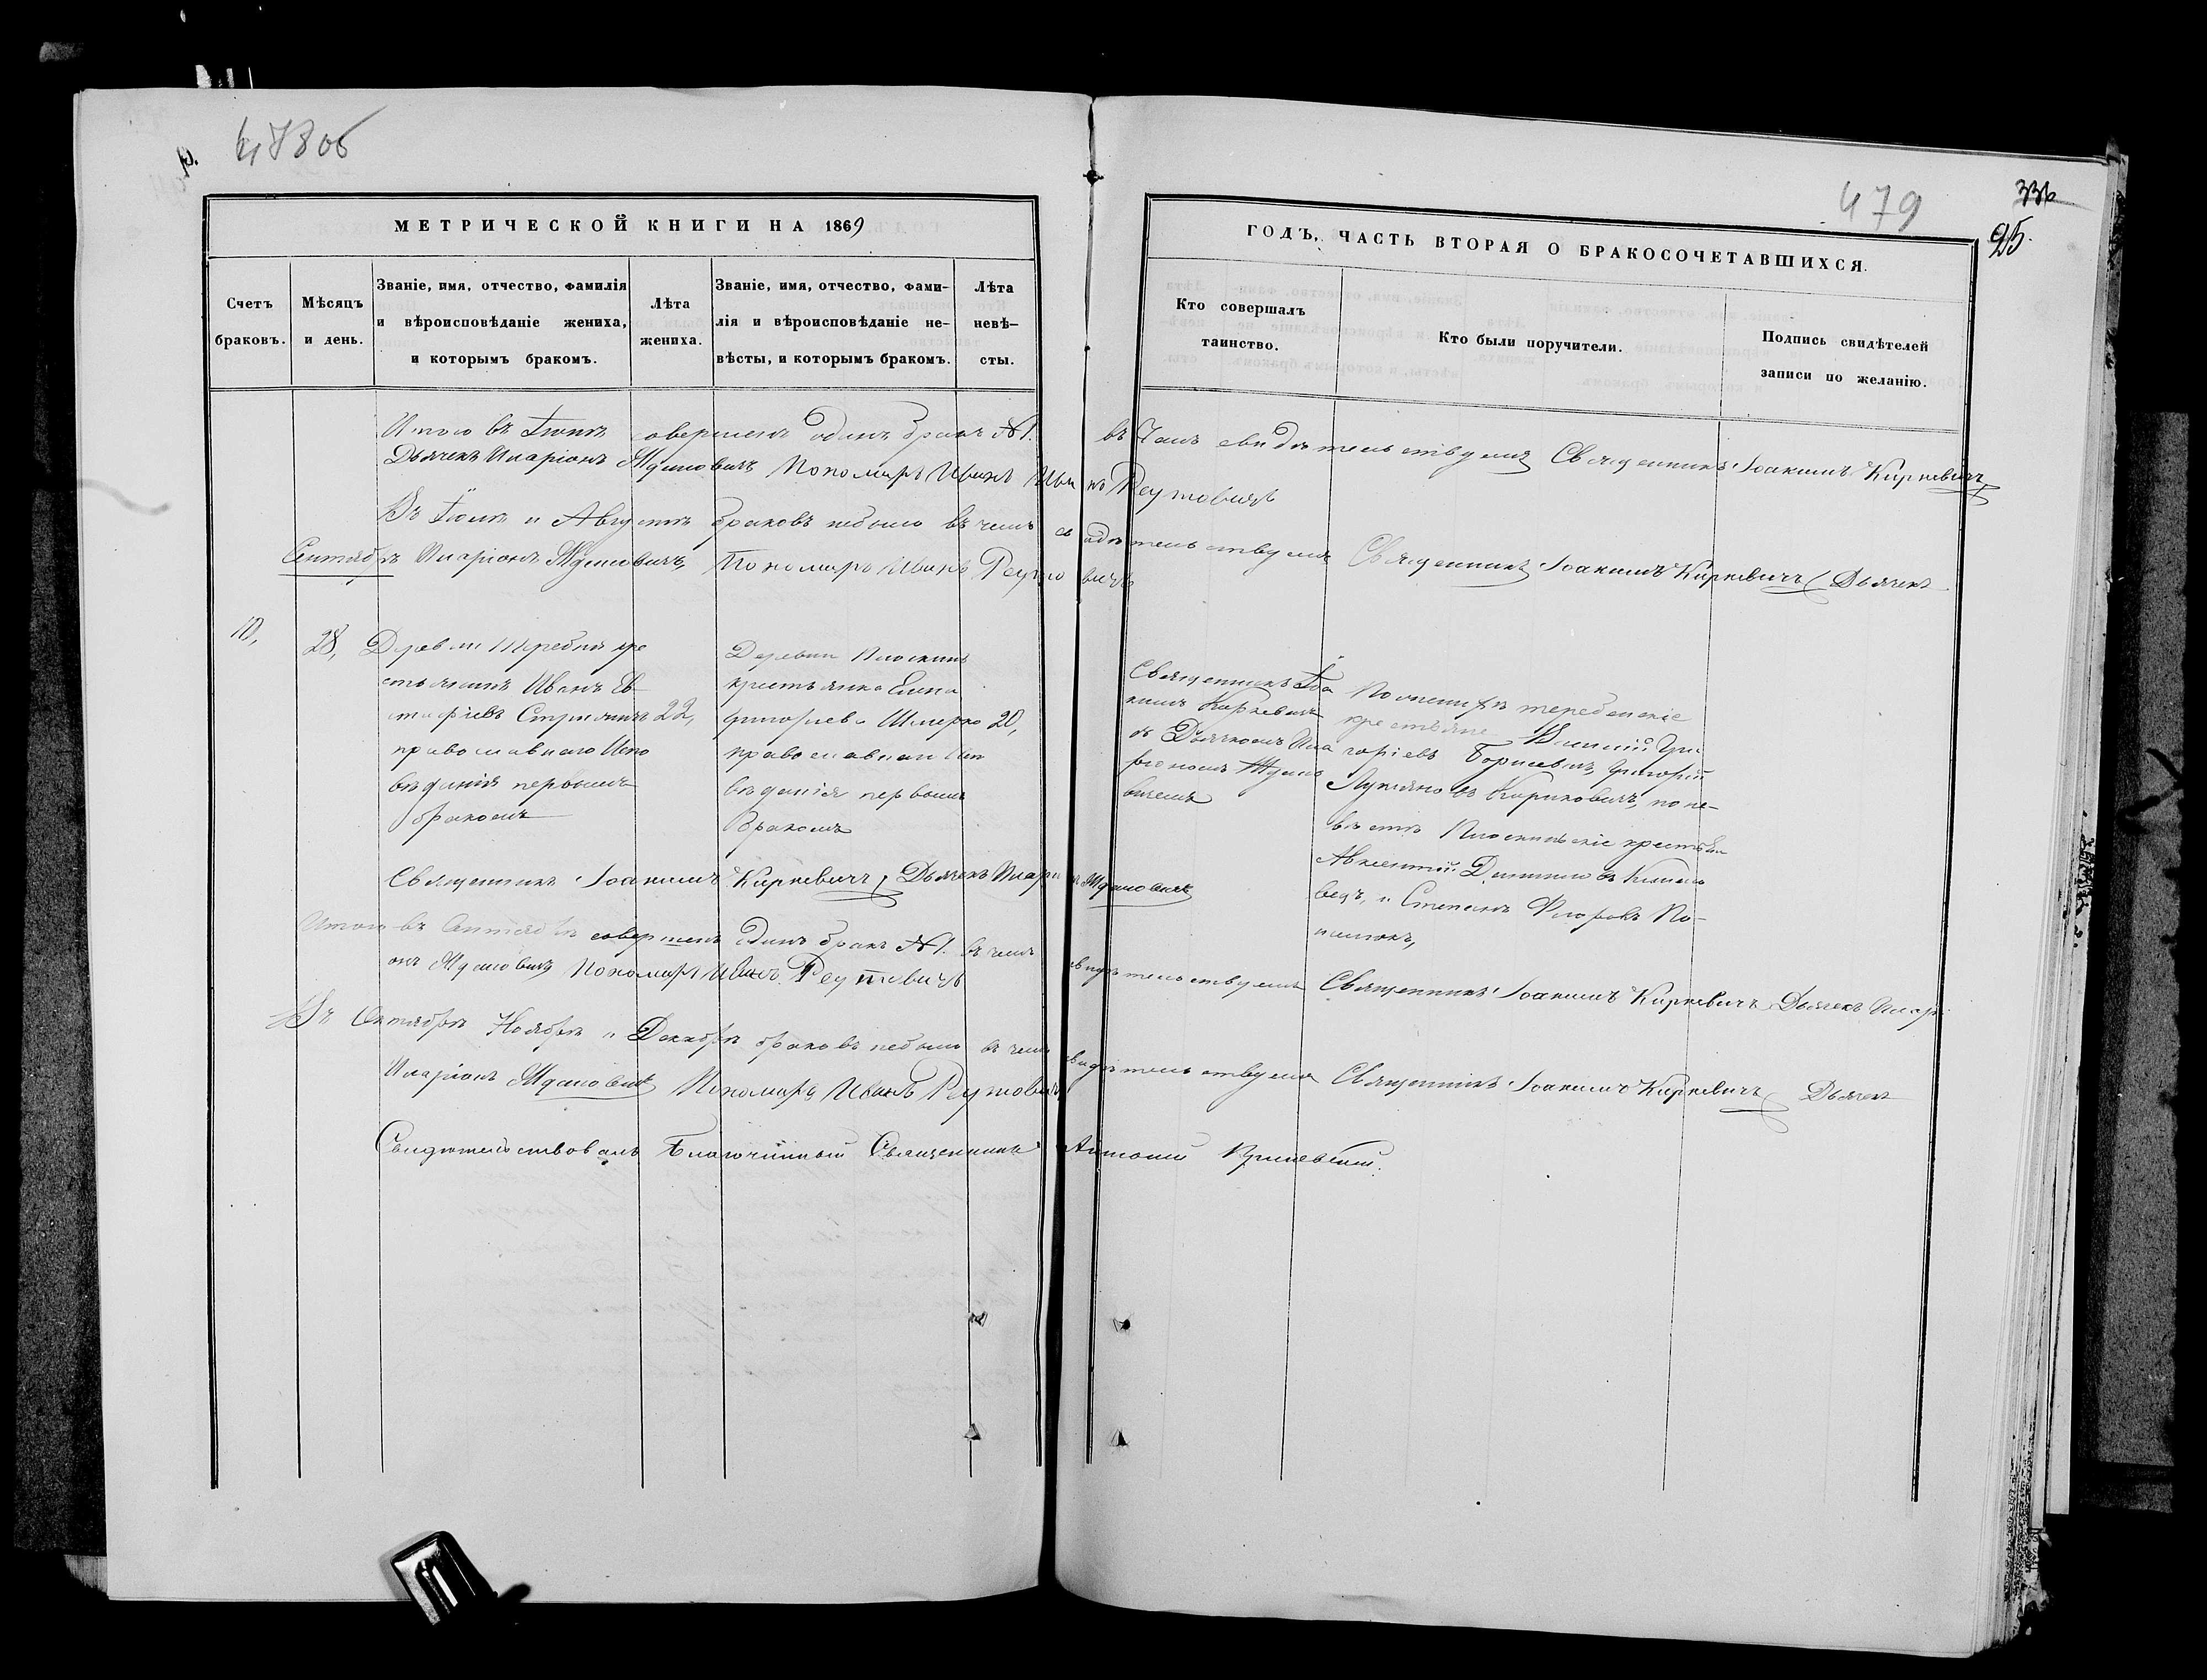 478об
479
336
25.
МЕТРИЧЕСКОЙ КНИГИ НА 1869
ГОДЪ, ЧАСТЬ ВТОРАЯ О БРАКОСОЧЕТАВШИХСЯ.
Счетъ браковъ.
Мѣсяцъ и день.
Званіе, имя, отчество, фамилія
и вѣроисповѣданіе жениха,
и которымъ бракомъ.
Лѣта
жениха.
Званіе, имя, отчество, фами-
лія и вѣроисповѣданіе не-
вѣсты, и которымъ бракомъ.
Лѣта
невѣ-
сты.
Кто совершалъ
таинство.
Кто были поручители.
Подпись свидѣтелей
записи по желанію.
Итого въ Іюнѣ совершенъ одинъ бракъ №1. въ чемъ свидѣтельствуемъ Священникъ Іоакимъ Киркевичъ
Дьячекъ Иларіонъ Ждановичъ Пономарь Иванъ Реутовичъ
Въ Іюлѣ и Августѣ браковъ небыло въ чемъ свидѣтельствуемъ Священникъ Іоакимъ Киркевичъ Дьячекъ
Сентябрь
Иларіонъ Ждановичъ, Пономарь Иванъ Реутовичъ
10,
28,
Деревни Теребли кре
стьянинъ Иванъ Ев
стафіевъ
православнаго Испо
вѣданія первымъ
бракомъ
22,
Деревни
крестьянка Елена
Григорьева
православнаго Исп
вѣданія первымъ
бракомъ
20,
Священникъ Іоа
кимъ Киркевичъ
съ Дьячкомъ Ила
ріономъ Ждано
вичемъ
По женихѣ теребенскіе
крестьяне Василій Гри
горіевъ Борисевичъ, Григорій
Лукьяновъ по не-
вѣстѣ крестьяне
Авксентій
и Степанъ Флоровъ
Священникъ Іоакимъ Киркевичъ, Дьячекъ Иларіонъ Ждановичъ
Итого въ Сентябрѣ совершенъ одинъ бракъ №1. въ чемъ свидѣтельствуемъ Священникъ Іоакимъ Киркевичъ Дьячекъ Иларі
онъ Ждановичъ Пономарь Иванъ Реутовичъ
Въ Октябрѣ Ноябрѣ и Декабрѣ браковъ небыло въ чемъ свидѣтельствуемъ Священникъ Іоакимъ Киркевичъ Дьячекъ
Иларіонъ Ждановичъ Пономарь Иванъ Реутовичъ
Свидѣтельствовалъ Благочинный Священникъ Антоній